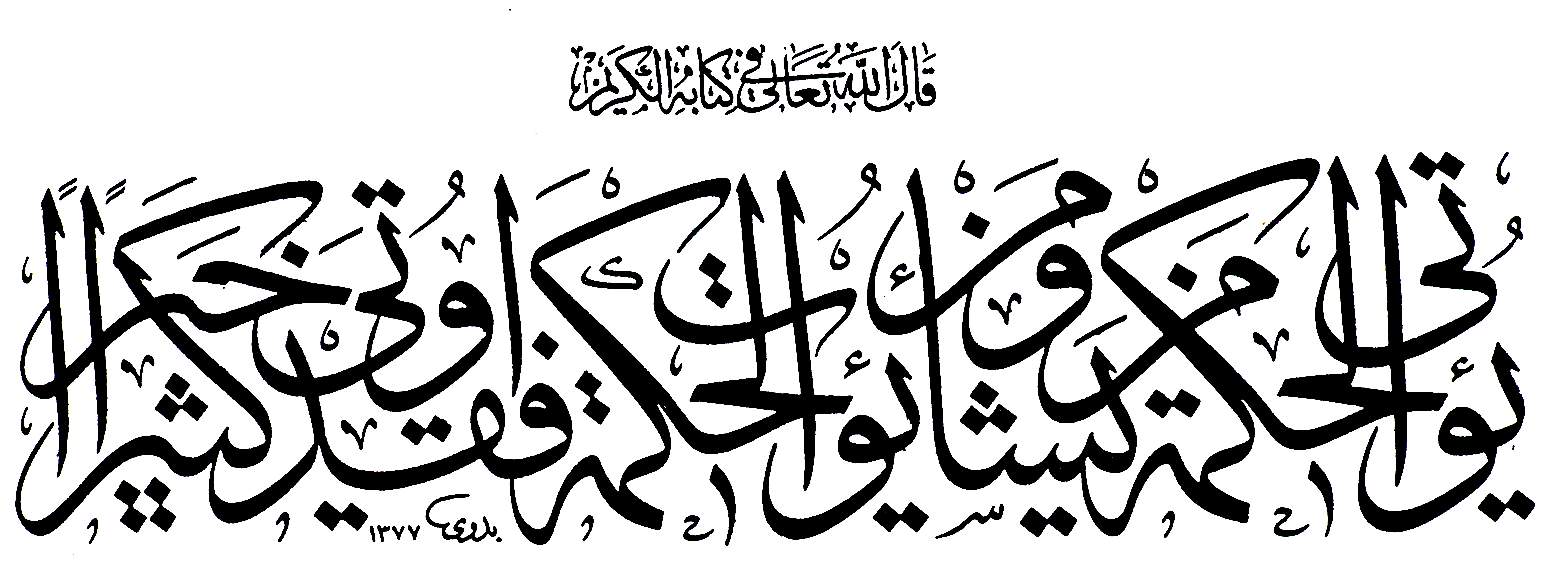 قال الله تعالى في كتابه الكريم
يؤتي الحكمة من يشاء ومن يؤت الحكمة فقد أوتي خيراً كثيراً
١٣٧٧